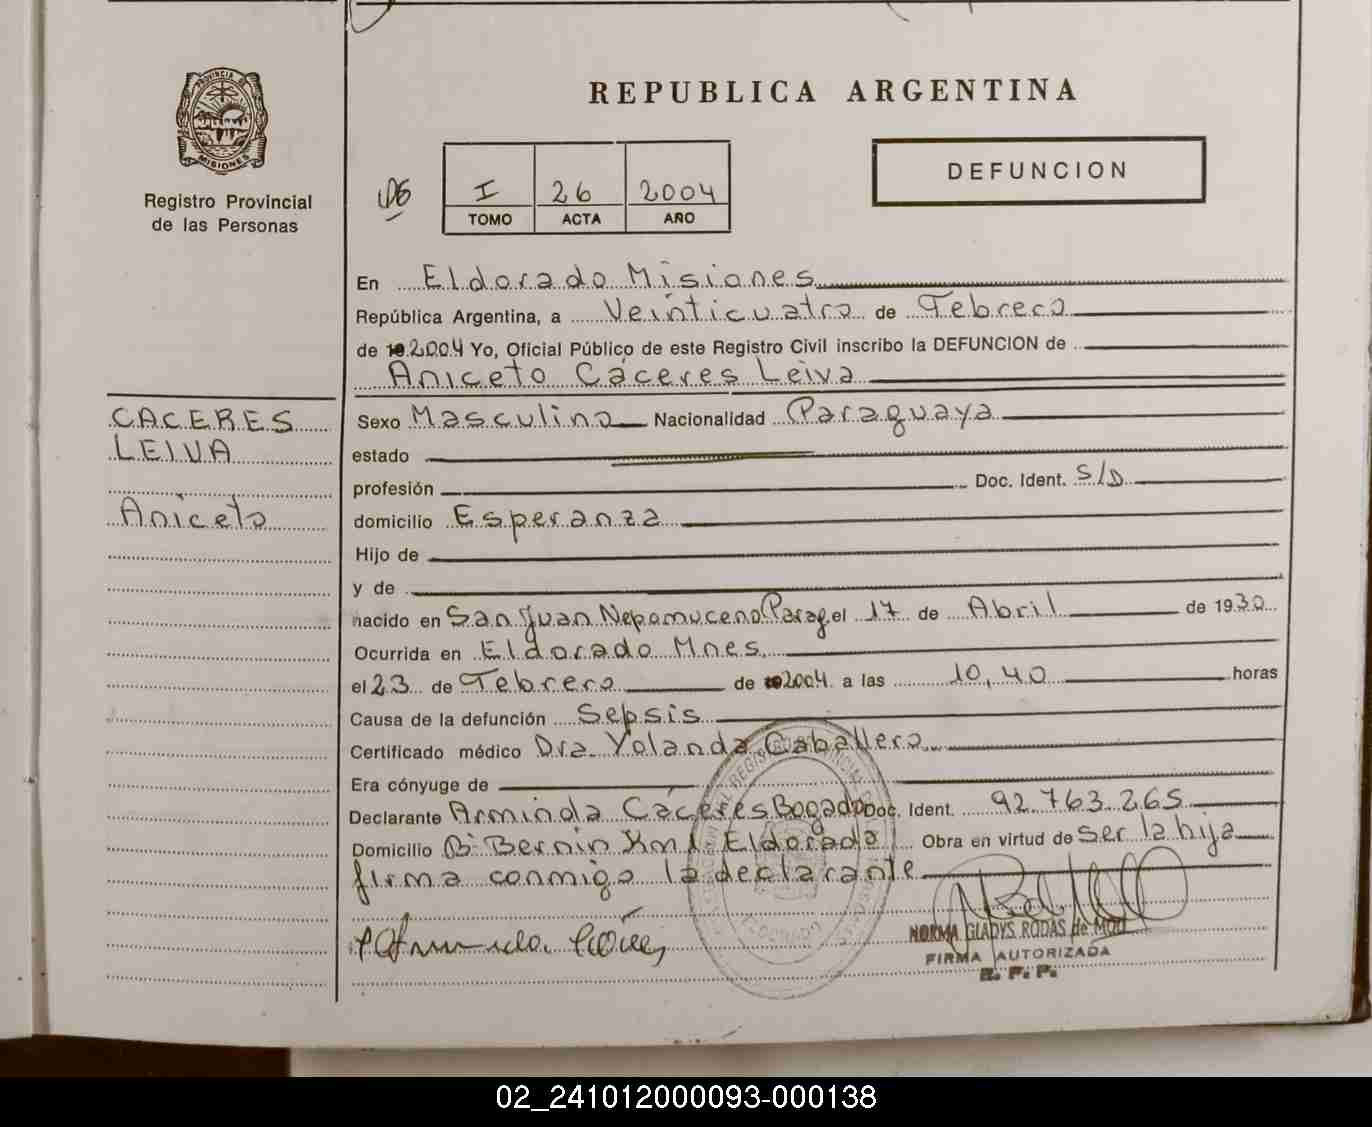 PROVINCIA DE
MISIONES
Registro Provincial
de las Personas
REPUBLICA ARGENTINA
DEFUNCION
I 26 2004
TOMO ACTA AÑO
CACERES
LEIVA
Aniceto
En Eldorado Misiones
República Argentina, a Veinticuatro de Febrero
de 2004 Yo, Oficial Público de este Registro Civil inscribo la DEFUNCION de
Aniceto Cáceres Leiva
Sexo Masculino Nacionalidad Paraguaya
estado
profesión Doc. Ident. S/D
domicilio Esperanza
Hijo de
y de
nacido en San Juan Nepomuceno Parag el 17 de Abril de 1930
Ocurrida en Eldorado Mnes.
el 23 de Febrero de 2004 a las 10,40 horas
Causa de la defunción Sepsis
Certificado médico Dra. Yolanda Caballero
Era cónyuge de
Declarante Arminda Cáceres Bogado Doc. Ident. 92.763.265
Domicilio B° Bernin Km 1 Eldorado Obra en virtud de ser la hija
firma conmigo la declarante
NORMA GLADYS RODAS de MOD
FIRMA AUTORIZADA
R. P. P.
ELDORADO
02_241012000093-000138